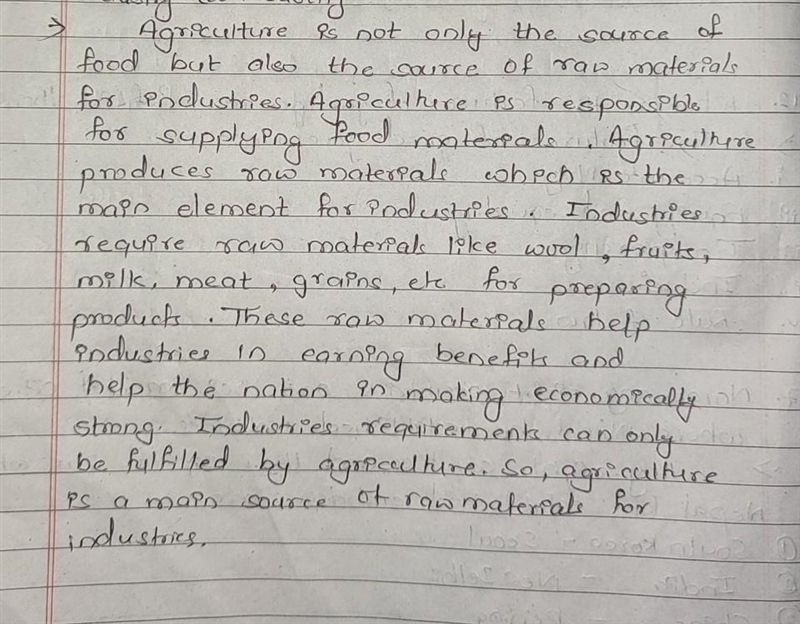 → Agriculture is not only the source of
food but also the source of raw materials
for industries. Agriculture is responsible
for supplying food materials. Agriculture
produces raw materials which is the
main element for industries. Industries
require raw materials like wool, fruits,
milk, meat, grains, etc for preparing
products. These raw materials help
industries in earning benefits and
help the nation in making economically
strong. Industries requirements can only
be fulfilled by agriculture. So, agriculture
is a main source of raw materials for
industries.